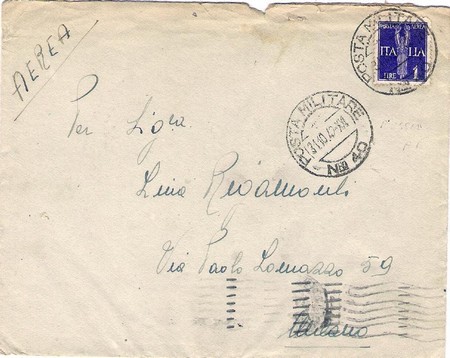 AEREA
POSTA MILITARE
POSTA AEREA
ITALIA
LIRE 1
POSTA MILITARE
31.10.40.XIX
No 40
Per Sig.ra
Lina Rigamonti
Via Paolo Lomazzo 59
Milano